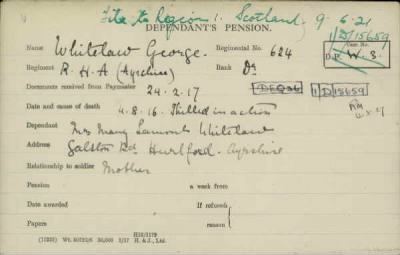 File to Region 1. Scotland 9.6.21
DEPENDANT'S PENSION.
1/D/15659
Case No.
D.P. W.S.
Name Whitelaw George. Regimental No. 624
Regiment R.H.A (Ayrshire) Rank Dr
Documents received from Paymaster 24.2.17
1/D15659
Date and cause of death 4.8.16. Killed in action
Dependant Mrs Mary Lamont Whitelaw
Address Galston Rd Hurlford. Ayrshire
Relationship to soldier Mother
Pension a week from
Date awarded If refused
Papers reason
H16/2179
H. & J., Ltd.